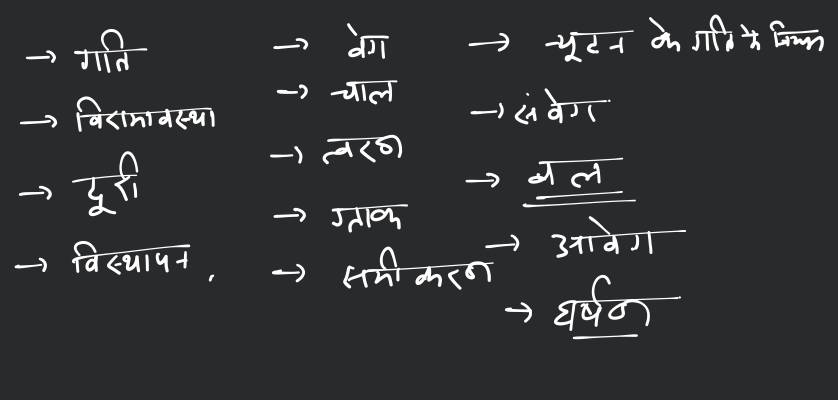 → गति
→ विरामावस्था
→ दूरी
→ विस्थापन .
→ वेग
→ चाल
→ त्वरण
→ ग्राफ
→ समीकरण
→ न्यूटन के गति के नियम
→ संवेग
→ बल
→ आवेग
→ घर्षण